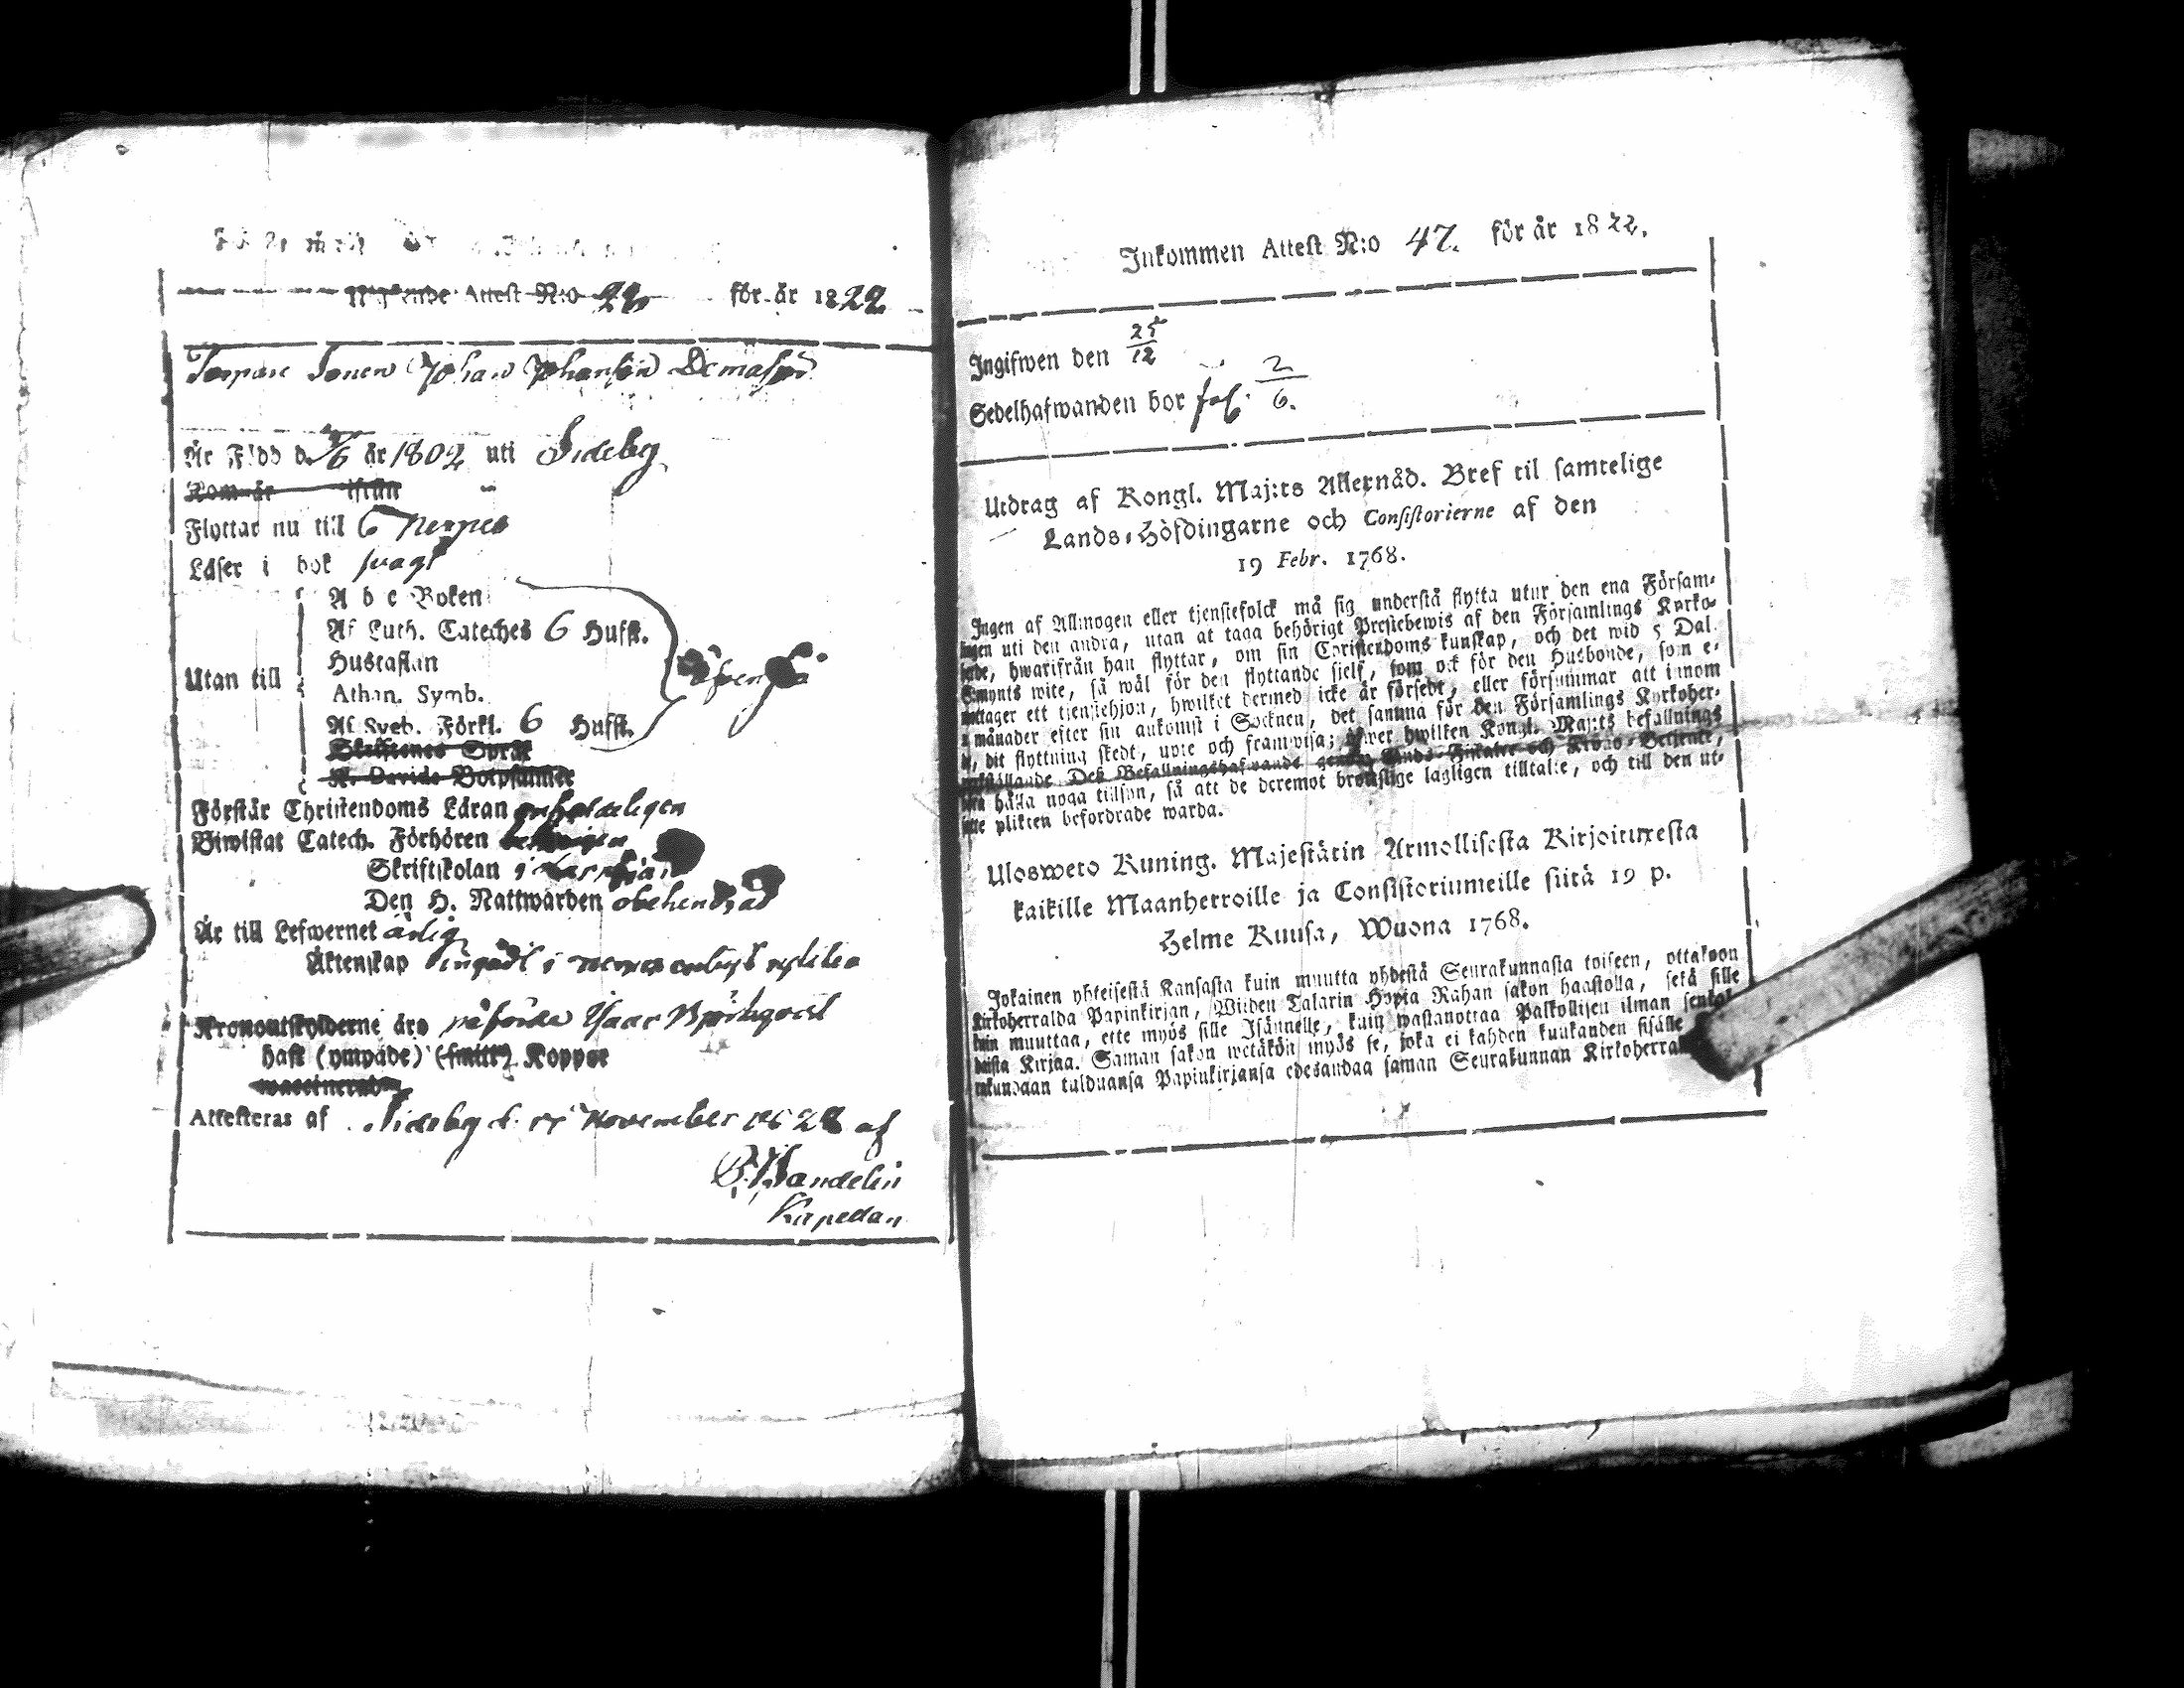 Attest N:o 22 för år 1822
Torpare Sonen Johan Johansson
Är Född d. /6 år 1802 uti Sideby
Kom år ifrån
Flyttar nu till Nerpes
Läser i bok svagt
A b c Boken
Af Luth. Cateches 6 Hufst.
Hustaflan
Utan till
Athan. Symb.
Af Sveb. Förkl. 6 Hufst.
Skriftenes Språk
K. Davids Botpsalmer
Förstår Christendoms Läran
Biwistat Catech. Förhören
Skriftskolan i
Den H. Nattwarden obehindrad
Är till Lefwernet ärlig
Äktenskap ingådt i
Kronoutskylderne äro påförde Isaac Björkqvist
haft (ympade) (smitt) Koppor
waccinerad
Attesteras af Sideby d. November 1822 af
Wandelin
Kapellan
Inkommen Attest N:o 47. för år 1822.
Ingifwen den 25/12
Sedelhafwanden bor fol. 2/6.
Utdrag af Kongl. Maj:ts Allernåd. Bref til samtelige
Lands-Höfdingarne och Consistorierne af den
19 Febr. 1768.
Ingen af Allmogen eller tjenstefolck må sig understå flytta utur den ena Försam-
lingen uti den andra, utan at taga behörigt Prestebewis af den Församlings Kyrko-
herde, hwarifrån han flyttar, om sin Christendoms kunskap, och det wid 5 Dal.
S:mynts wite, så wäl för den flyttande sjelf, som ock för den Husbonde, som e-
mottager ett tjenstehjon, hwilket dermed icke är försedt, eller försummar att innom
2 månader efter sin ankomst i Socknen, det samma för den Församlings Kyrkoher-
de, dit flyttning skedt, upte och framwisa; öfwer hwilken Kongl. Maj:ts befallnings
werkställande Deß Befallningshafwande genom Lands-Fiskaler och Krono-Betjente,
böra hålla noga tillsyn, så att de deremot brottslige lagligen tilltalte, och till den ut-
satte plikten befordrade warda.
Ulosweto Kuning. Majestätin Armollisesta Kirjoituxesta
kaikille Maanherroille ja Consistoriumeille siitä 19 p.
Helme Kuusa, Wuona 1768.
Jokainen yhteisestä Kansasta kuin muutta yhdestä Seurakunnasta toiseen, ottakoon
Kirkoherralda Papinkirjan, Wiiden Talarin Hopia Rahan sakon haastolla, sekä sille
kuin muuttaa, ette myös sille Isännelle, kuin wastanottaa Palkollisen ilman
daista Kirjaa. Saman sakon wetäkön myös se, joka ei kahden kuukanden sisälle
tulduansa Papinkirjansa edesandaa saman Seurakunnan